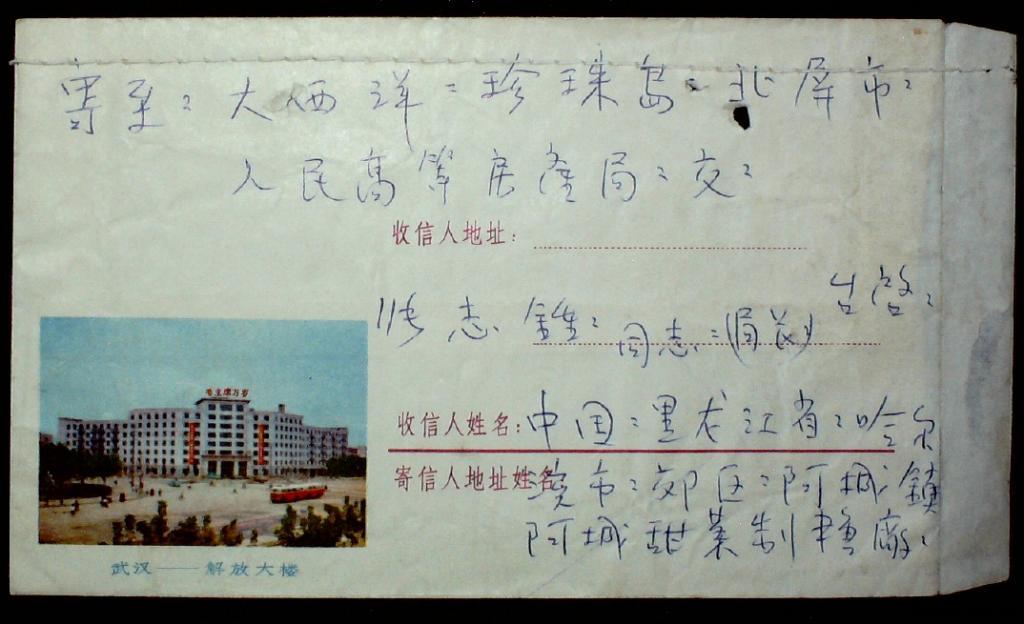 寄至：大西洋：珍珠島：北屏市：
人民高等房產局：交：
收信人地址：
台啓：
张志鑫：同志：(局长)
毛主席万岁
收信人姓名：中国：黑龙江省：哈尔
寄信人地址姓名 滨市：郊区：阿城鎮
阿城甜菜制糖廠：
武汉——解放大楼